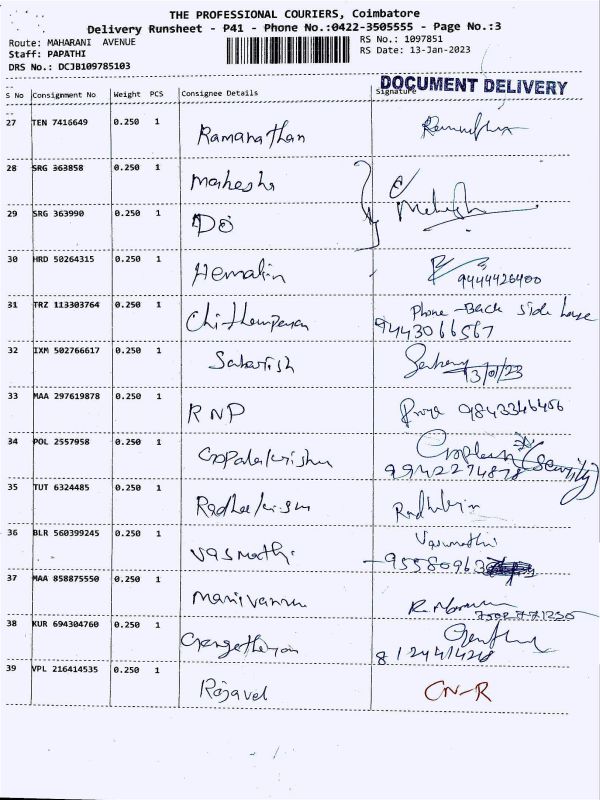 THE PROFESSIONAL COURIERS, Coimbatore
Delivery Runsheet - P41 - Phone No.:0422-3505555 - Page No.:3
Route: MAHARANI AVENUE
RS No.: 1097851
Staff: PAPATHI
RS Date: 13-Jan-2023
DRS No.: DCJB109785103
DOCUMENT DELIVERY
S No Consignment No Weight PCS Consignee Details Signature
27 TEN 7416649 0.250 1 Ramanathan
28 SRG 363858 0.250 1 Mahesh
29 SRG 363990 0.250 1 DO
30 HRD 50264315 0.250 1 9444426400
31 TRZ 113303764 0.250 1 Phone Back side house
9443066567
32 IXM 502766617 0.250 1 13/01/23
33 MAA 297619878 0.250 1 RNP 9843346456
34 POL 2557958 0.250 1 Gopalakrishn (Security)
9942274878
35 TUT 6324485 0.250 1
36 BLR 560399245 0.250 1 Vasmathi Vasumathi
37 MAA 858875550 0.250 1
38 KUR 694304760 0.250 1
39 VPL 216414535 0.250 1 Rajavel CN-R